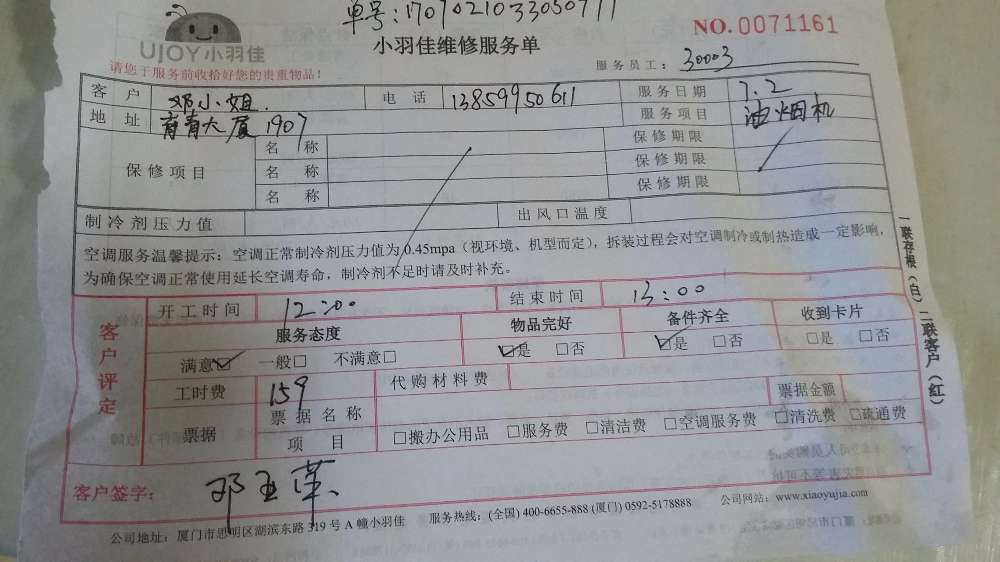 单号:170702103305077
UJOY小羽佳
小羽佳维修服务单
NO.0071161
请您于服务前收拾好您的贵重物品!
服务员工: 30003
客户 邓小姐. 电话 13859950611 服务日期 7.2
地址 育青大厦1907 服务项目 油烟机
保修项目 名称 保修期限
名称 保修期限
名称 保修期限
制冷剂压力值 出风口温度
空调服务温馨提示:空调正常制冷剂压力值为0.45mpa(视环境、机型而定),拆装过程会对空调制冷或制热造成一定影响,
为确保空调正常使用延长空调寿命,制冷剂不足时请及时补充。
客户评定
开工时间 12:00 结束时间 13:00
服务态度 物品完好 备件齐全 收到卡片
满意☑ 一般□ 不满意□ ☑是 □否 ☑是 □否 □是 □否
工时费 159 代购材料费
票据 票据名称 票据金额
项目 □搬办公用品 □服务费 □清洁费 □空调服务费 □清洗费 □疏通费
客户签字: 邓玉革
公司地址:厦门市思明区湖滨东路319号A幢小羽佳 服务热线:(全国) 400-6655-888 (厦门) 0592-5178888 公司网站:www.xiaoyujia.com
一联存根(白) 二联客户(红)